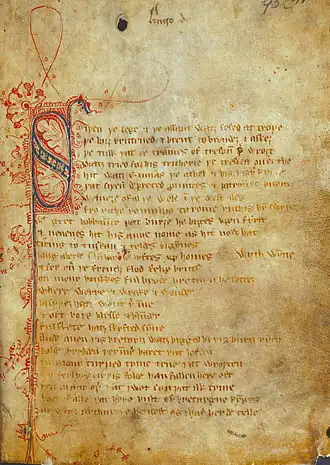 SIþen þe sege & þe assaut watz sesed at troye
þe borȝ brittened & brent to brondez & askez
þe tulk þat þe trammes of tresoun þer wroȝt
watz tried for his tricherie þe trewest on erthe
hit watz ennias þe athel & his highe kynde
þat siþen depreced prouinces & patrounes bicome
welneȝe of al þe wele in þe west iles
fro riche romulus to rome ricchis hym swyþe
gret bobbaunce þat burȝe he biges vpon fyrst
& neuenes hit his aune nome as hit now hat
ticius to tuskan & teldes bigynnes
langaberde in lumbardie lyftes vp homes wyth wynne
& fer ouer þe french flod felix brutus
on mony bonkkes ful brode bretayn he settez
where werre & wrake & wonder
bi syþez hatz wont þer inne
& oft boþe blysse & blunder
ful skete hatz skyfted synne
ande quen þis bretayn watz bigged bi þis burn rych
bolde bredden þer inne baret þat lofden
in mony turned tyme tene þat wroȝten
mo ferlyes on þis folde han fallen here oft
þen in any oþer þat I wot syn þat ilk tyme
bot of alle þat here bult of bretaygne kynges
ay watz arthur þe hendest as I haf herde telle